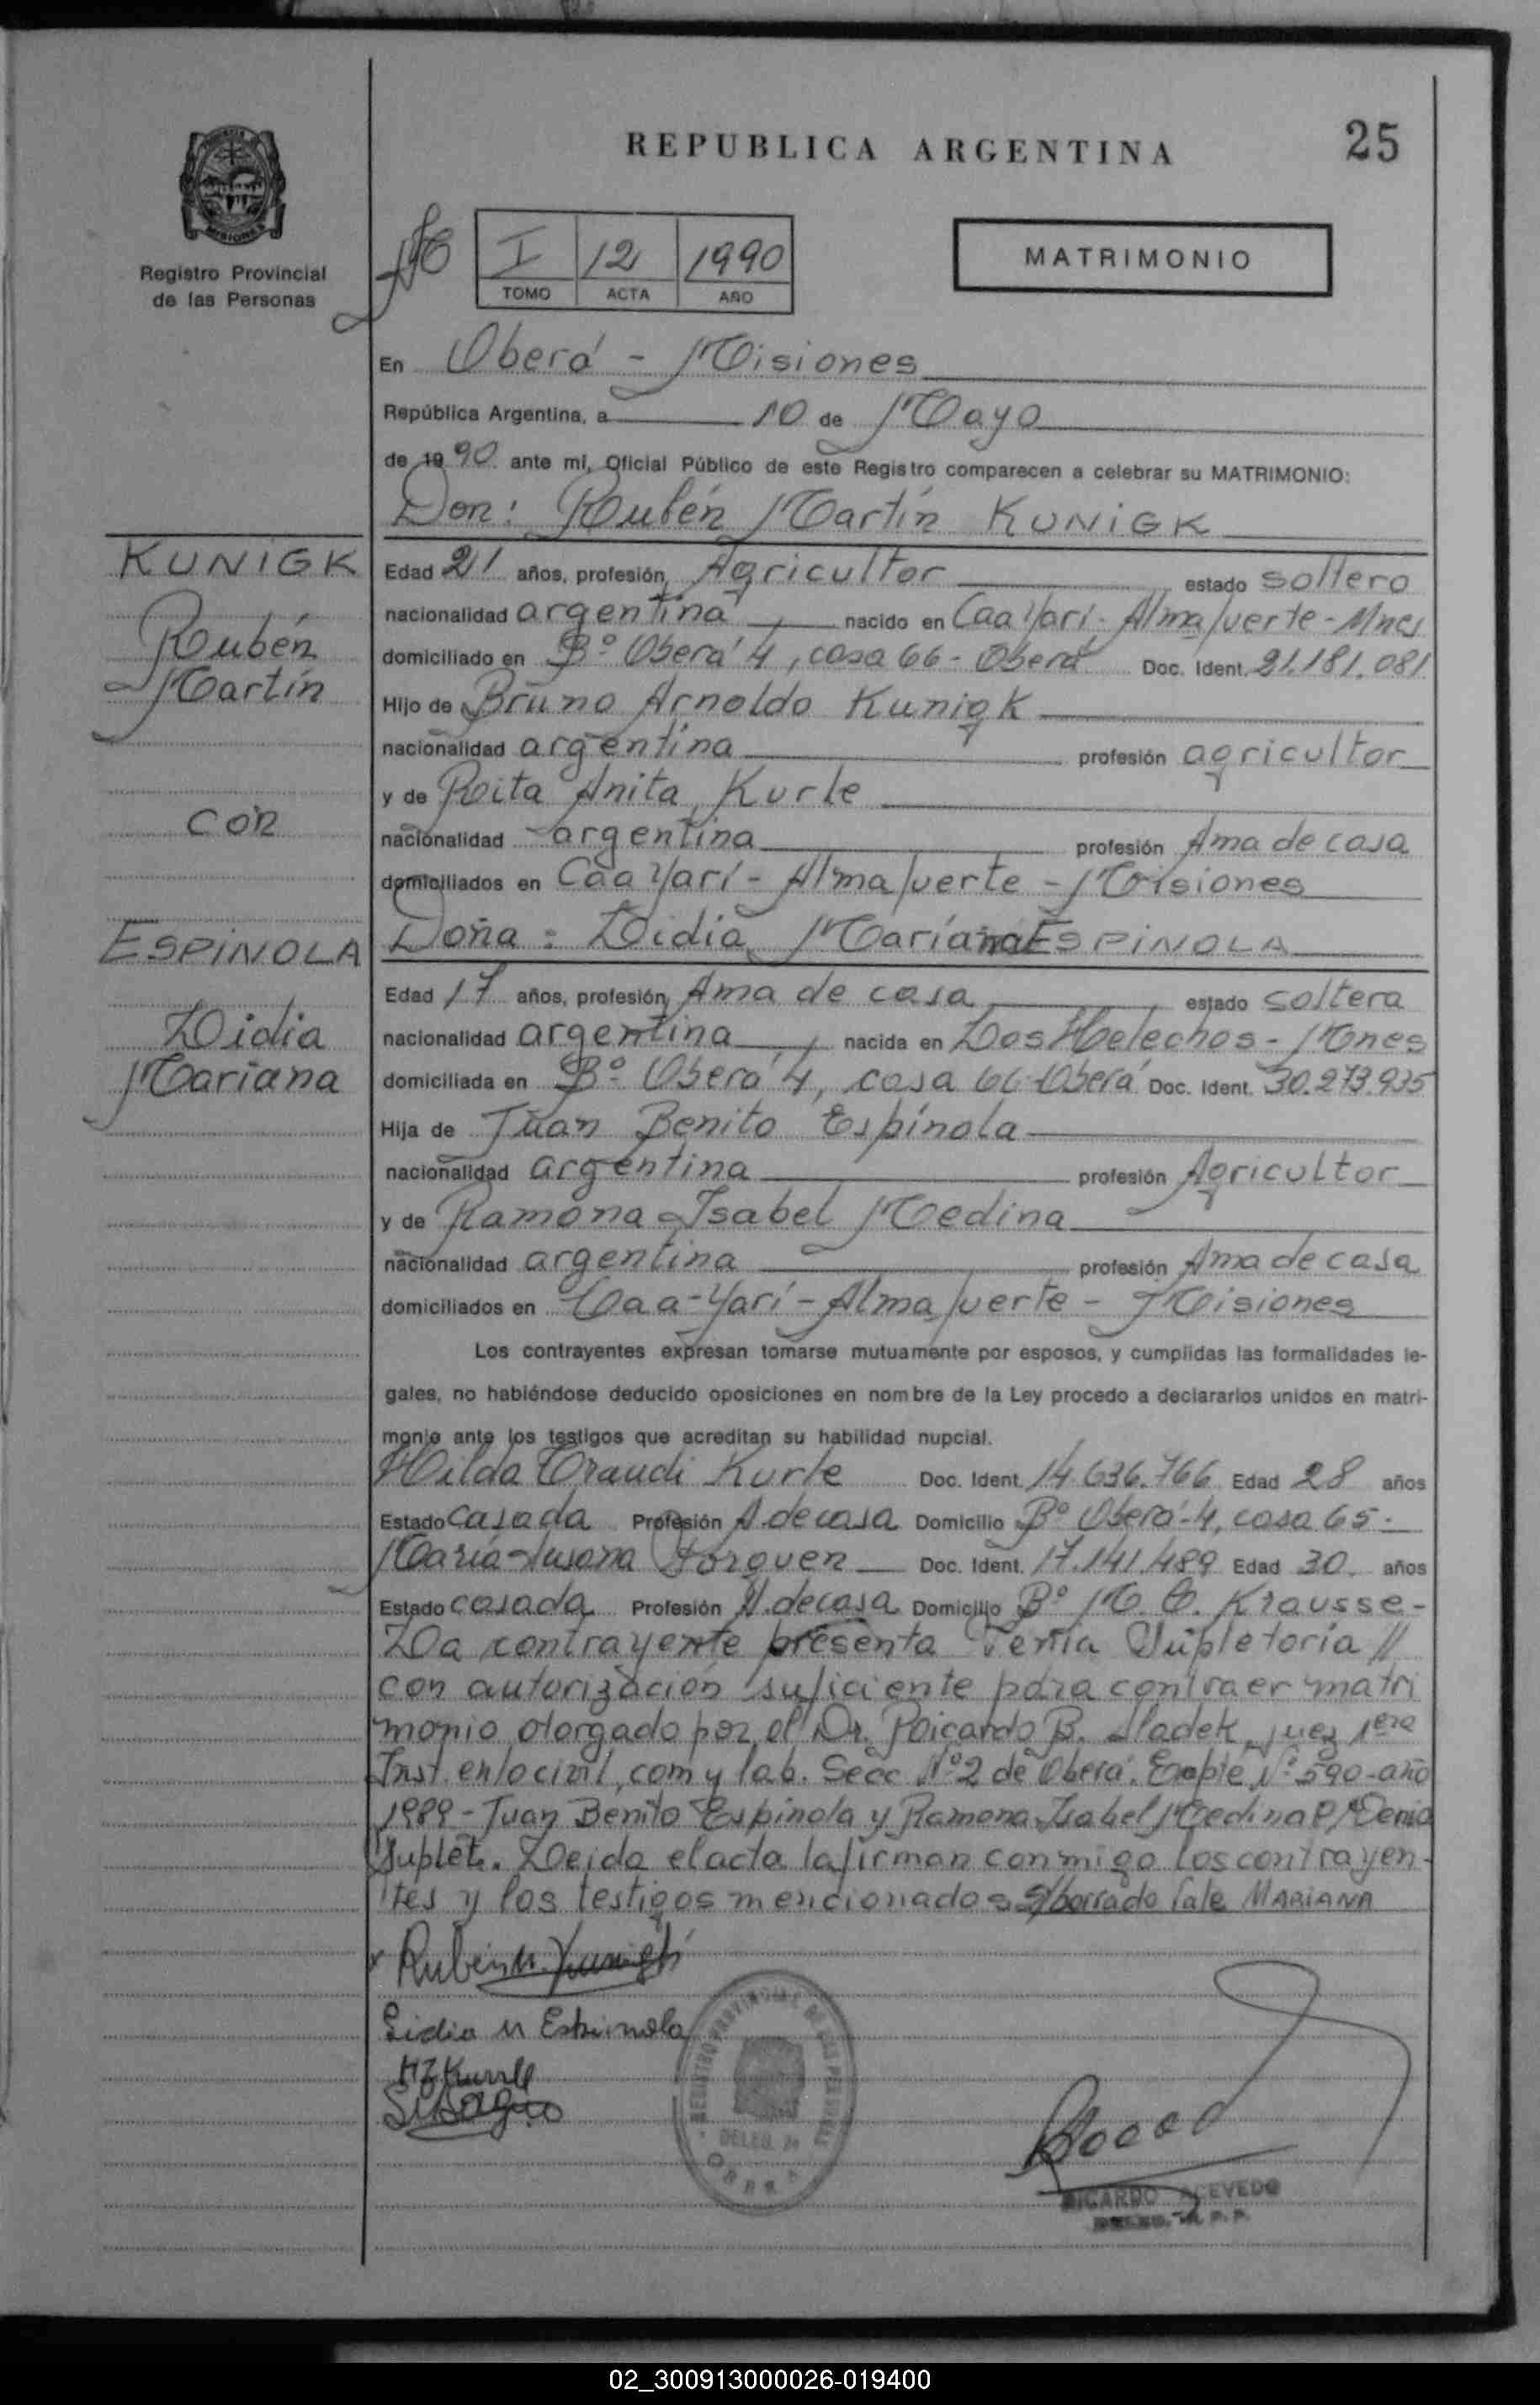 REPUBLICA ARGENTINA
25
MISIONES
Registro Provincial
de las Personas
I 12 1990
TOMO ACTA AÑO
MATRIMONIO
En Oberá - Misiones
República Argentina, a 10 de Mayo
de 1990 ante mi, Oficial Público de este Registro comparecen a celebrar su MATRIMONIO:
Don: Rubén Martín KUNIGK
KUNIGK
Rubén
Martín
con
ESPINOLA
Lidia
Mariana
Edad 21 años, profesión, Agricultor estado soltero
nacionalidad argentina nacido en Caa Yarí - Almafuerte - Mnes
domiciliado en Bº Oberá 4, casa 66 - Oberá Doc. Ident. 21.181.081
Hijo de Bruno Arnoldo Kunigk
nacionalidad argentina profesión agricultor
y de Rita Anita Kurle
nacionalidad argentina profesión Ama de casa
domiciliados en Caa Yarí - Almafuerte - Misiones
Doña: Lidia Mariana ESPINOLA
Edad 17 años, profesión, Ama de casa estado soltera
nacionalidad argentina nacida en Dos Helechos - Mnes
domiciliada en Bº Oberá 4, casa 66 Oberá Doc. Ident. 30.273.935
Hija de Juan Benito Espínola
nacionalidad argentina profesión Agricultor
y de Ramona Isabel Medina
nacionalidad argentina profesión Ama de casa
domiciliados en Caa-Yarí - Almafuerte - Misiones
Los contrayentes expresan tomarse mutuamente por esposos, y cumplidas las formalidades le-
gales, no habiéndose deducido oposiciones en nombre de la Ley procedo a declararlos unidos en matri-
monio ante los testigos que acreditan su habilidad nupcial.
Hilda Traudi Kurle Doc. Ident. 14.636.766 Edad 28 años
Estado casada Profesión A. de casa Domicilio Bº Oberá-4, casa 65.
María Susana Doc. Ident. 17.141.489 Edad 30. años
Estado casada Profesión A. de casa Domicilio Bº Krausse-
La contrayente presenta Venia Supletoria //
con autorización suficiente para contraer matri
monio otorgado por el Dr. Ricardo B. Sladek, juez 1era
Inst. en lo civil, com y lab. Secc Nº 2 de Oberá. Expte Nº 590-año
1989 - Juan Benito Espínola y Ramona Isabel Medina P/ Venia
Suplet. Leida el acta la firman conmigo los contrayen-
tes y los testigos mencionados S/borrado Vale MARIANA
Rubén M. Kunigk
Lidia M Espinola
REGISTRO PROVINCIAL DE LAS PERSONAS
OBERA
RICARDO ACEVEDO
02_300913000026-019400